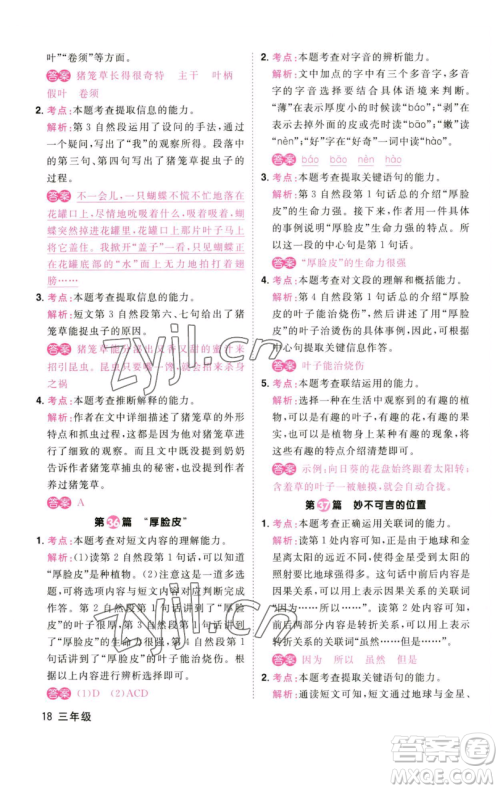 叶”“卷须”等方面。
答案 猪笼草长得很奇特 主干 叶柄
假叶 卷须
2. 考点：本题考查提取信息的能力。
解析：第 3 自然段运用了设问的手法，通
过提问，写下了“我”的观察所得。根据
第三、第四句写出了猪笼草捉虫子的
过程。
答案 不一会儿，一只蝴蝶不慌不忙地落在
花罐口上，尽情地吮吸着花罐口的蜜汁。
蝴蝶突然掉进花罐里，花罐上的盖子马上
将它盖住。我掀开“盖子”一看，蝴蝶正在
花罐底部的“水”面上无力地扇动着翅
膀……
3. 考点：本题考查提取信息的能力。
解析：短文第 3 自然段第六、七句给出了猪
笼草能捉虫子的原因。
答案 猪笼草能分泌出又香又甜的蜜汁来
招引昆虫。昆虫一嘴馋，就会招来杀身
之祸
4. 考点：本题考查归纳总结的能力。
解析：作者在文中详细描写了猪笼草的外形
特点和抓虫子过程，但并没有写到奶奶
告诉作者猪笼草捕虫的功能，也没有写如何
养护猪笼草。
答案 A
第36篇 “厚脸皮”
1. 考点：本题考查对短文内容的理解能力。
解析：(1)读第 2 自然段第 1 句话，可以知
道“厚脸皮”是种植物。(2)注意这是一道多
项选择题，要将选项与短文内容对应后完成
作答。第 2 自然段第 1 句话讲到了“厚
脸皮”的花很常见，第 3 自然段讲到了“厚
脸皮”的生命力很强，第 4 自然段第 1 句
话讲到了“厚脸皮”的叶子能治烧伤。
答案 (1)D (2)ACD
2. 考点：本题考查对字音的辨析能力。
解析：文中加点的字都是多音字，多音字
的字音要根据具体的语境来判断。
“薄”在表示厚度小时读“báo”；“剥”在
表示去掉外面的皮或壳时读“bāo”；“嫩”读
“nèn”；“好”在“好奇”一词中读“hào”。
答案 báo bāo nèn hào
3. 考点：本题考查提取关键语句的能力。
解析：第 3 自然段第 1 句话总的介绍“厚脸
皮”的生命力强的特点，后面用具体
的事例说明“厚脸皮”的生命力强，所以这
一段的中心句是第 1 句话。
答案 “厚脸皮”的生命力很强
4. 考点：本题考查对文段的理解和概括能力。
解析：第 4 自然段第 1 句话总写“厚脸皮”
的叶子能治烧伤，后面写“厚脸皮”的叶子
治烫伤的具体事例，因此可以根据第 1 句
话中的关键信息作答。
答案 叶子能治烧伤
5. 考点：本题考查联结运用的能力。
解析：选择一种在生活中观察到的有趣的植
物，可以是形状有趣的，可以是颜色有趣的，
也可以是花或叶子有趣的……将你知道的
植物和它有趣的现象简单地写出来，注意
植物属于自然现象，不能写人为的现象，这
些有趣的现象应该是自然发生的。
答案 示例：向日葵的花盘会跟着太阳转；
含羞草的叶子一被触摸，就会自动合起来。
第37篇 妙不可言的位置
1. 考点：本题考查正确运用关联词的能力。
解析：读第 1 处内容，可以知道，因为地球
离太阳的距离比金星远，所以
地球获得的热更少，使得金星受到太阳的
照射比地球强得多，前后内容是
因果关系，可以填表示因果关系的关联词
“因为……所以……”。读第 2 处内容，
前后两部分内容是转折关系，可以填表示
转折关系的关联词“虽然……但是……”。
答案 因为 所以 虽然 但是
2. 考点：本题考查提取关键语句的能力。
解析：通读短文，知道短文通过地球与金星、
18 三年级
zyjl.cn
zyjl.cn
答案圈
MXQE.COM